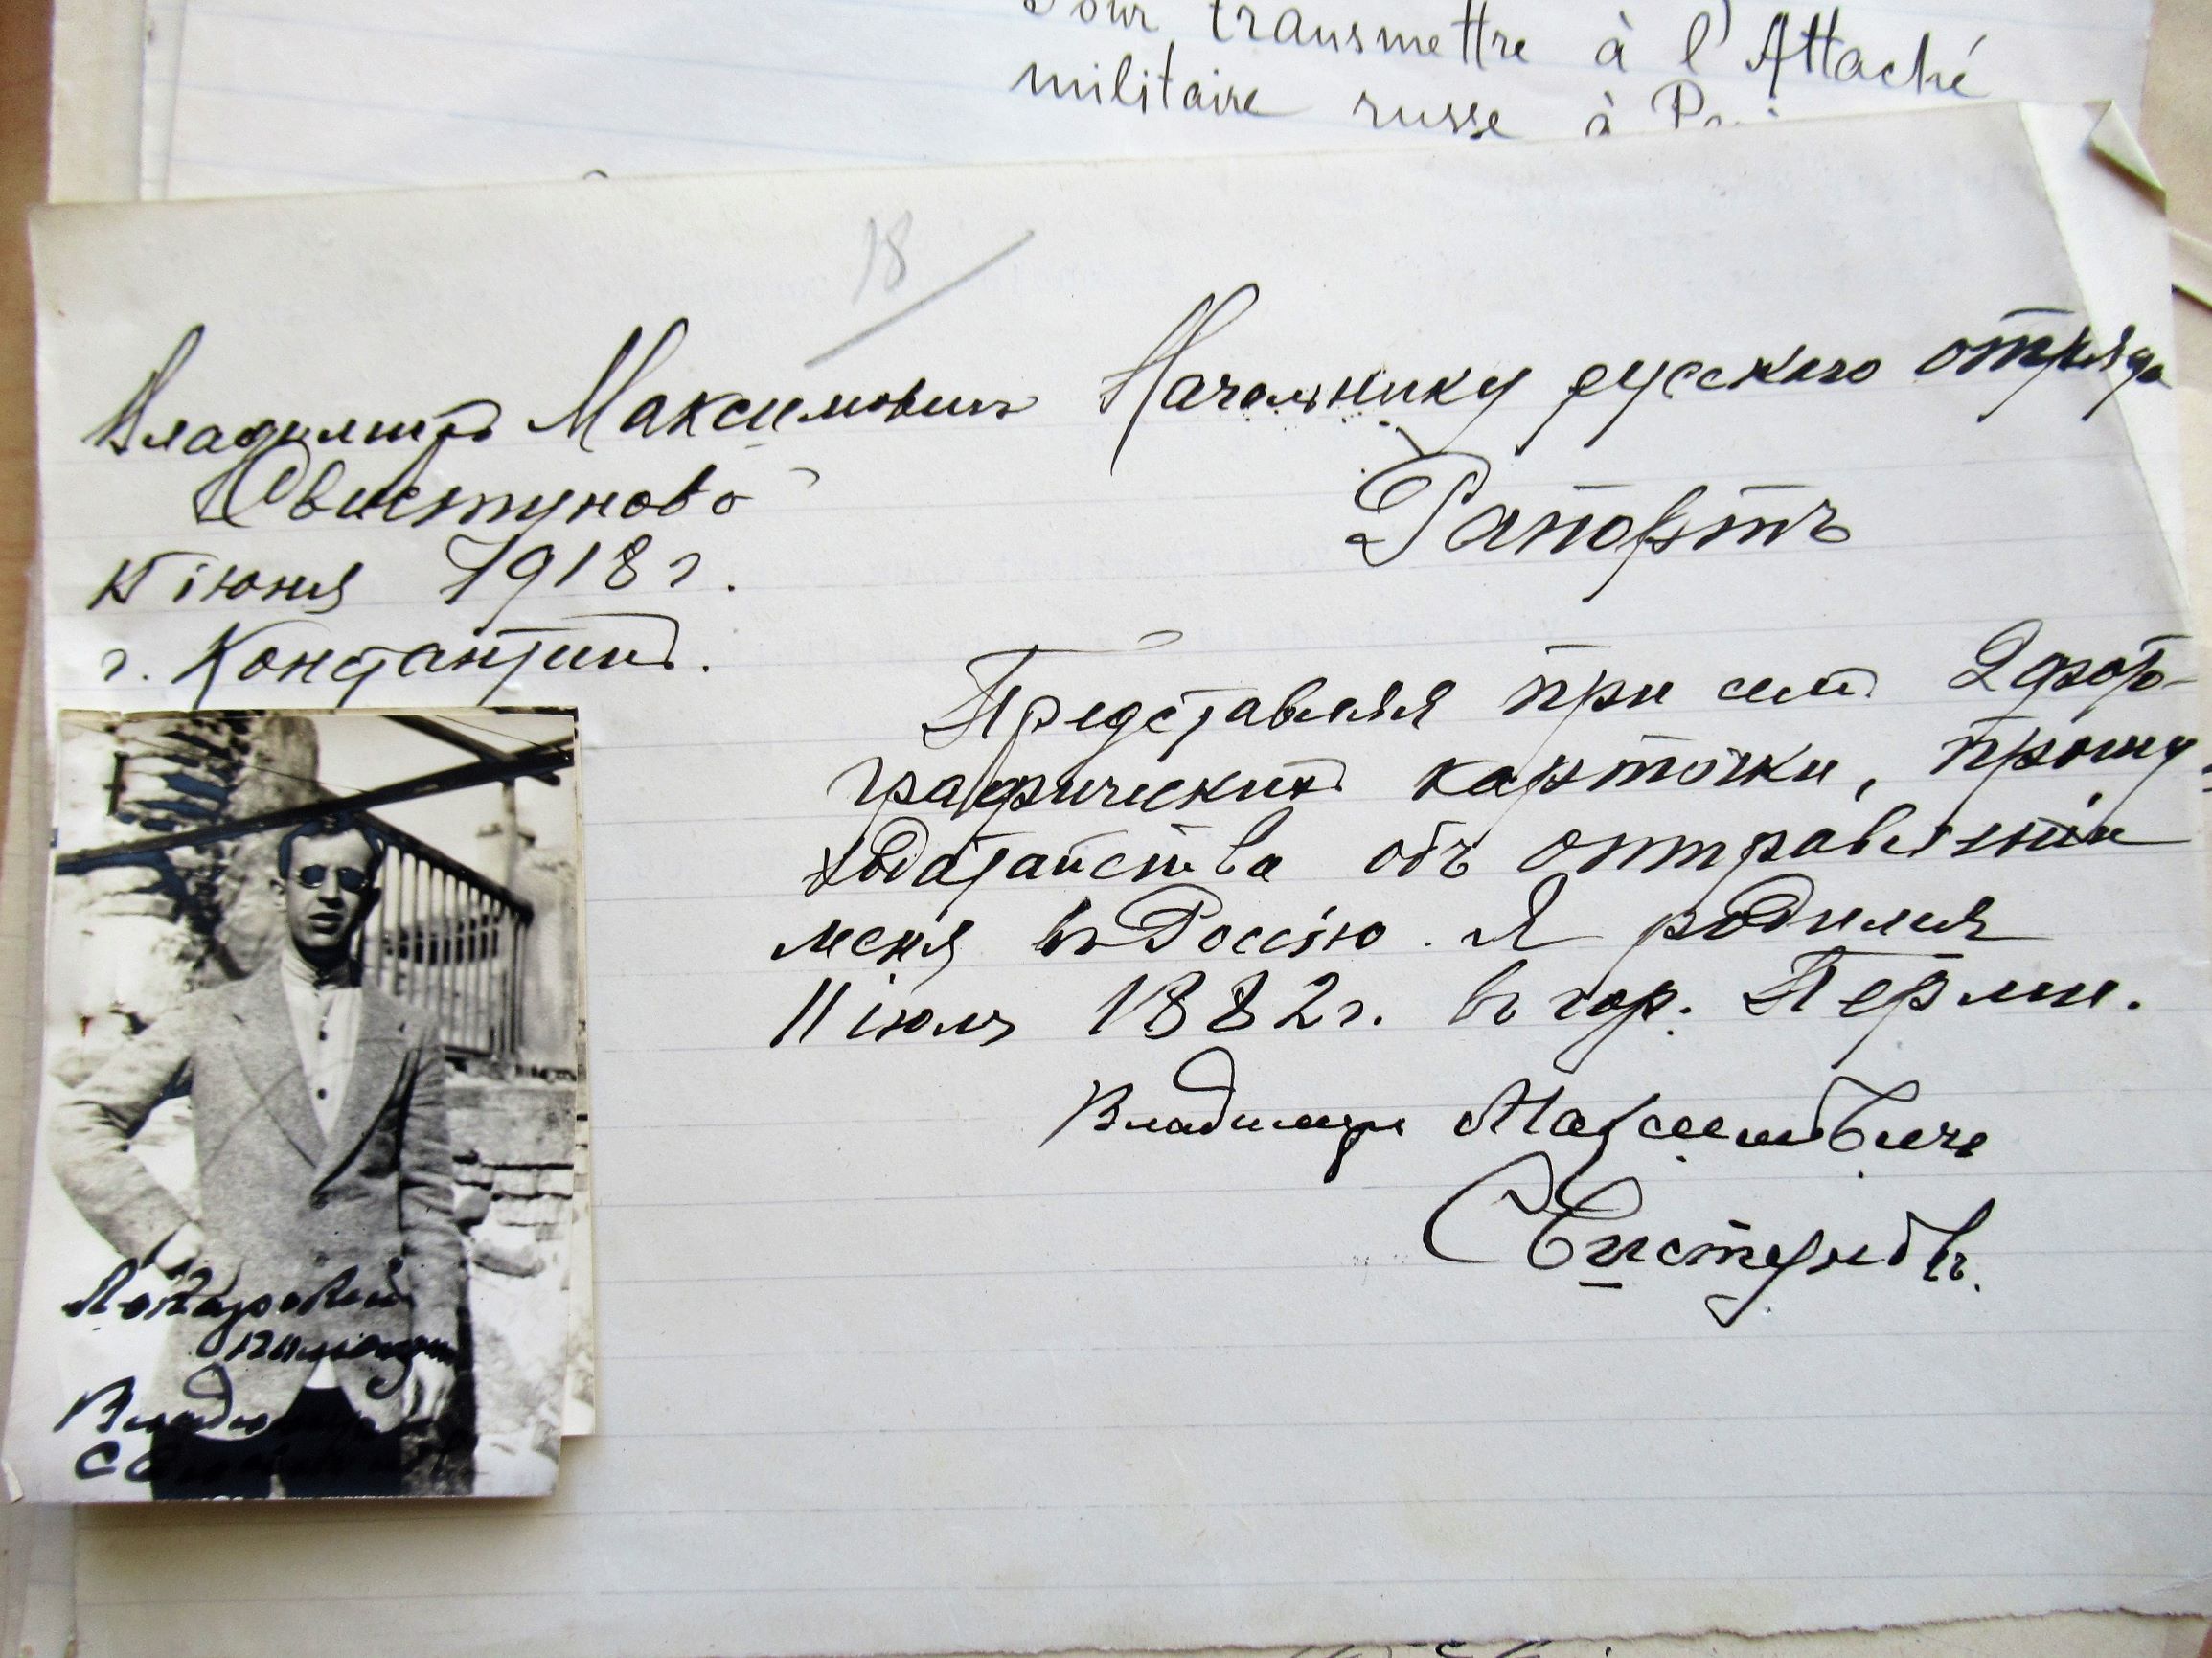 Pour transmettre à l'Attaché
militaire russe à
18
Владимiръ Максимовичъ
Свистуновъ
15 iюня 1918 г.
г. Константинъ.
Начальнику русского отряда
Рапортъ
Представляя при семъ 2 фото-
графическихъ карточки, прошу
ходатайства объ отправленiи
меня въ Россiю. Я родился
11 iюля 1882 г. въ гор. Перми.
Владимиръ Максимовичъ
Свистуновъ.
Владимиръ